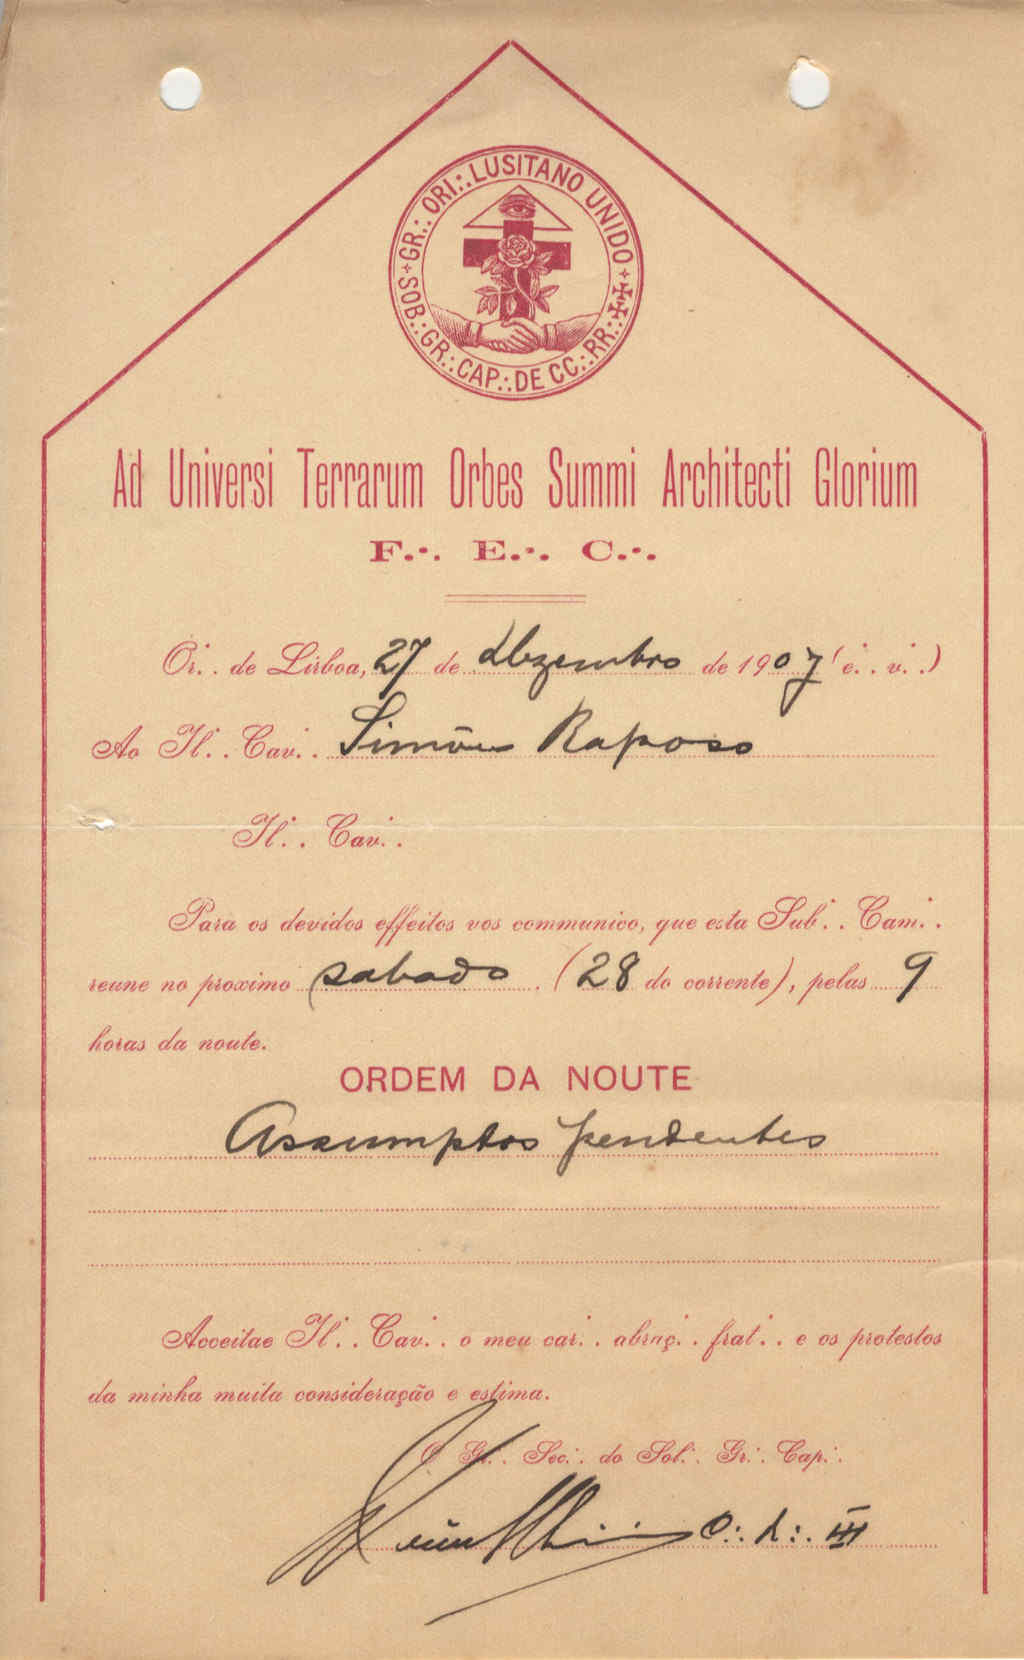 GR∴ ORI∴ LUSITANO UNIDO
SOB∴ GR∴ CAP∴ DE CC∴ RR∴
Ad Universi Terrarum Orbes Summi Architecti Glorium
F∴ E∴ C∴
Or∴ de Lisboa, 27 de Dezembro de 1907 (e∴ v∴)
Ao Il∴ Cav∴ Simões Raposo
Il∴ Cav∴
Para os devidos effeitos vos communico, que esta Sub∴ Cam∴
reune no proximo sabado (28 do corrente), pelas 9
horas da noute.
ORDEM DA NOUTE
Assumptos pendentes
Acceitae Il∴ Cav∴ o meu car∴ abraç∴ frat∴ e os protestos
da minha muita consideração e estima.
O Gr∴ Sec∴ do Sob∴ Gr∴ Cap∴